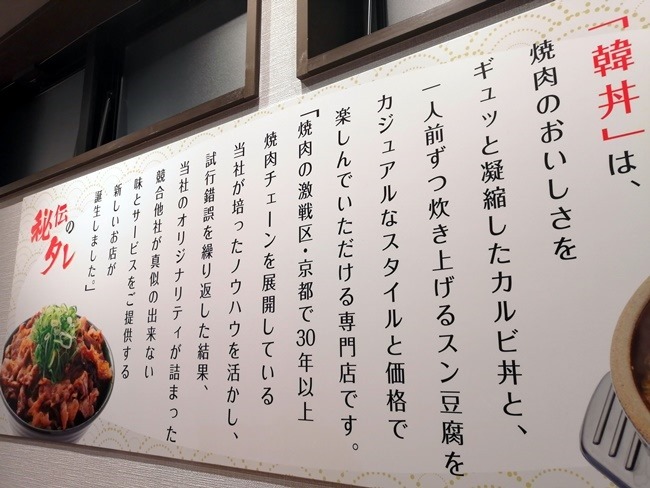 「韓丼」は、
焼肉のおいしさを
ギュッと凝縮したカルビ丼と、
一人前ずつ炊き上げるスン豆腐を
カジュアルなスタイルと価格で
楽しんでいただける専門店です。
「焼肉の激戦区・京都で30年以上
焼肉チェーンを展開している
当社が培ったノウハウを活かし、
試行錯誤を繰り返した結果、
当社のオリジナリティが詰まった
競合他社が真似の出来ない
味とサービスをご提供する
新しいお店が
誕生しました。」
秘伝の
タレ